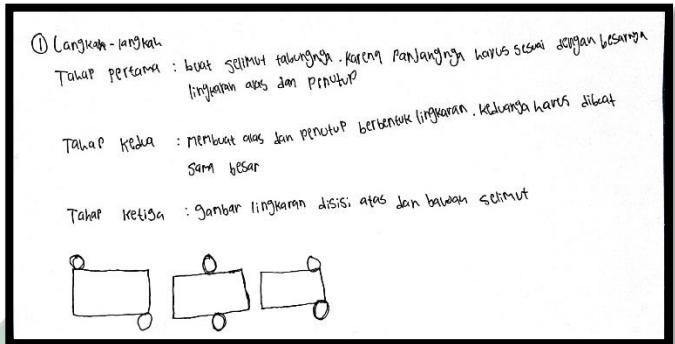 ① Langkah-langkah
Tahap pertama : buat selimut tabungnya. karena Panjangnya harus sesuai dengan besarnya
lingkaran alas dan Penutup
Tahap Kedua : Membuat alas dan penutup berbentuk lingkaran. Keduanya harus dibuat
sama besar
Tahap Ketiga : gambar lingkaran disisi atas dan bawah selimut